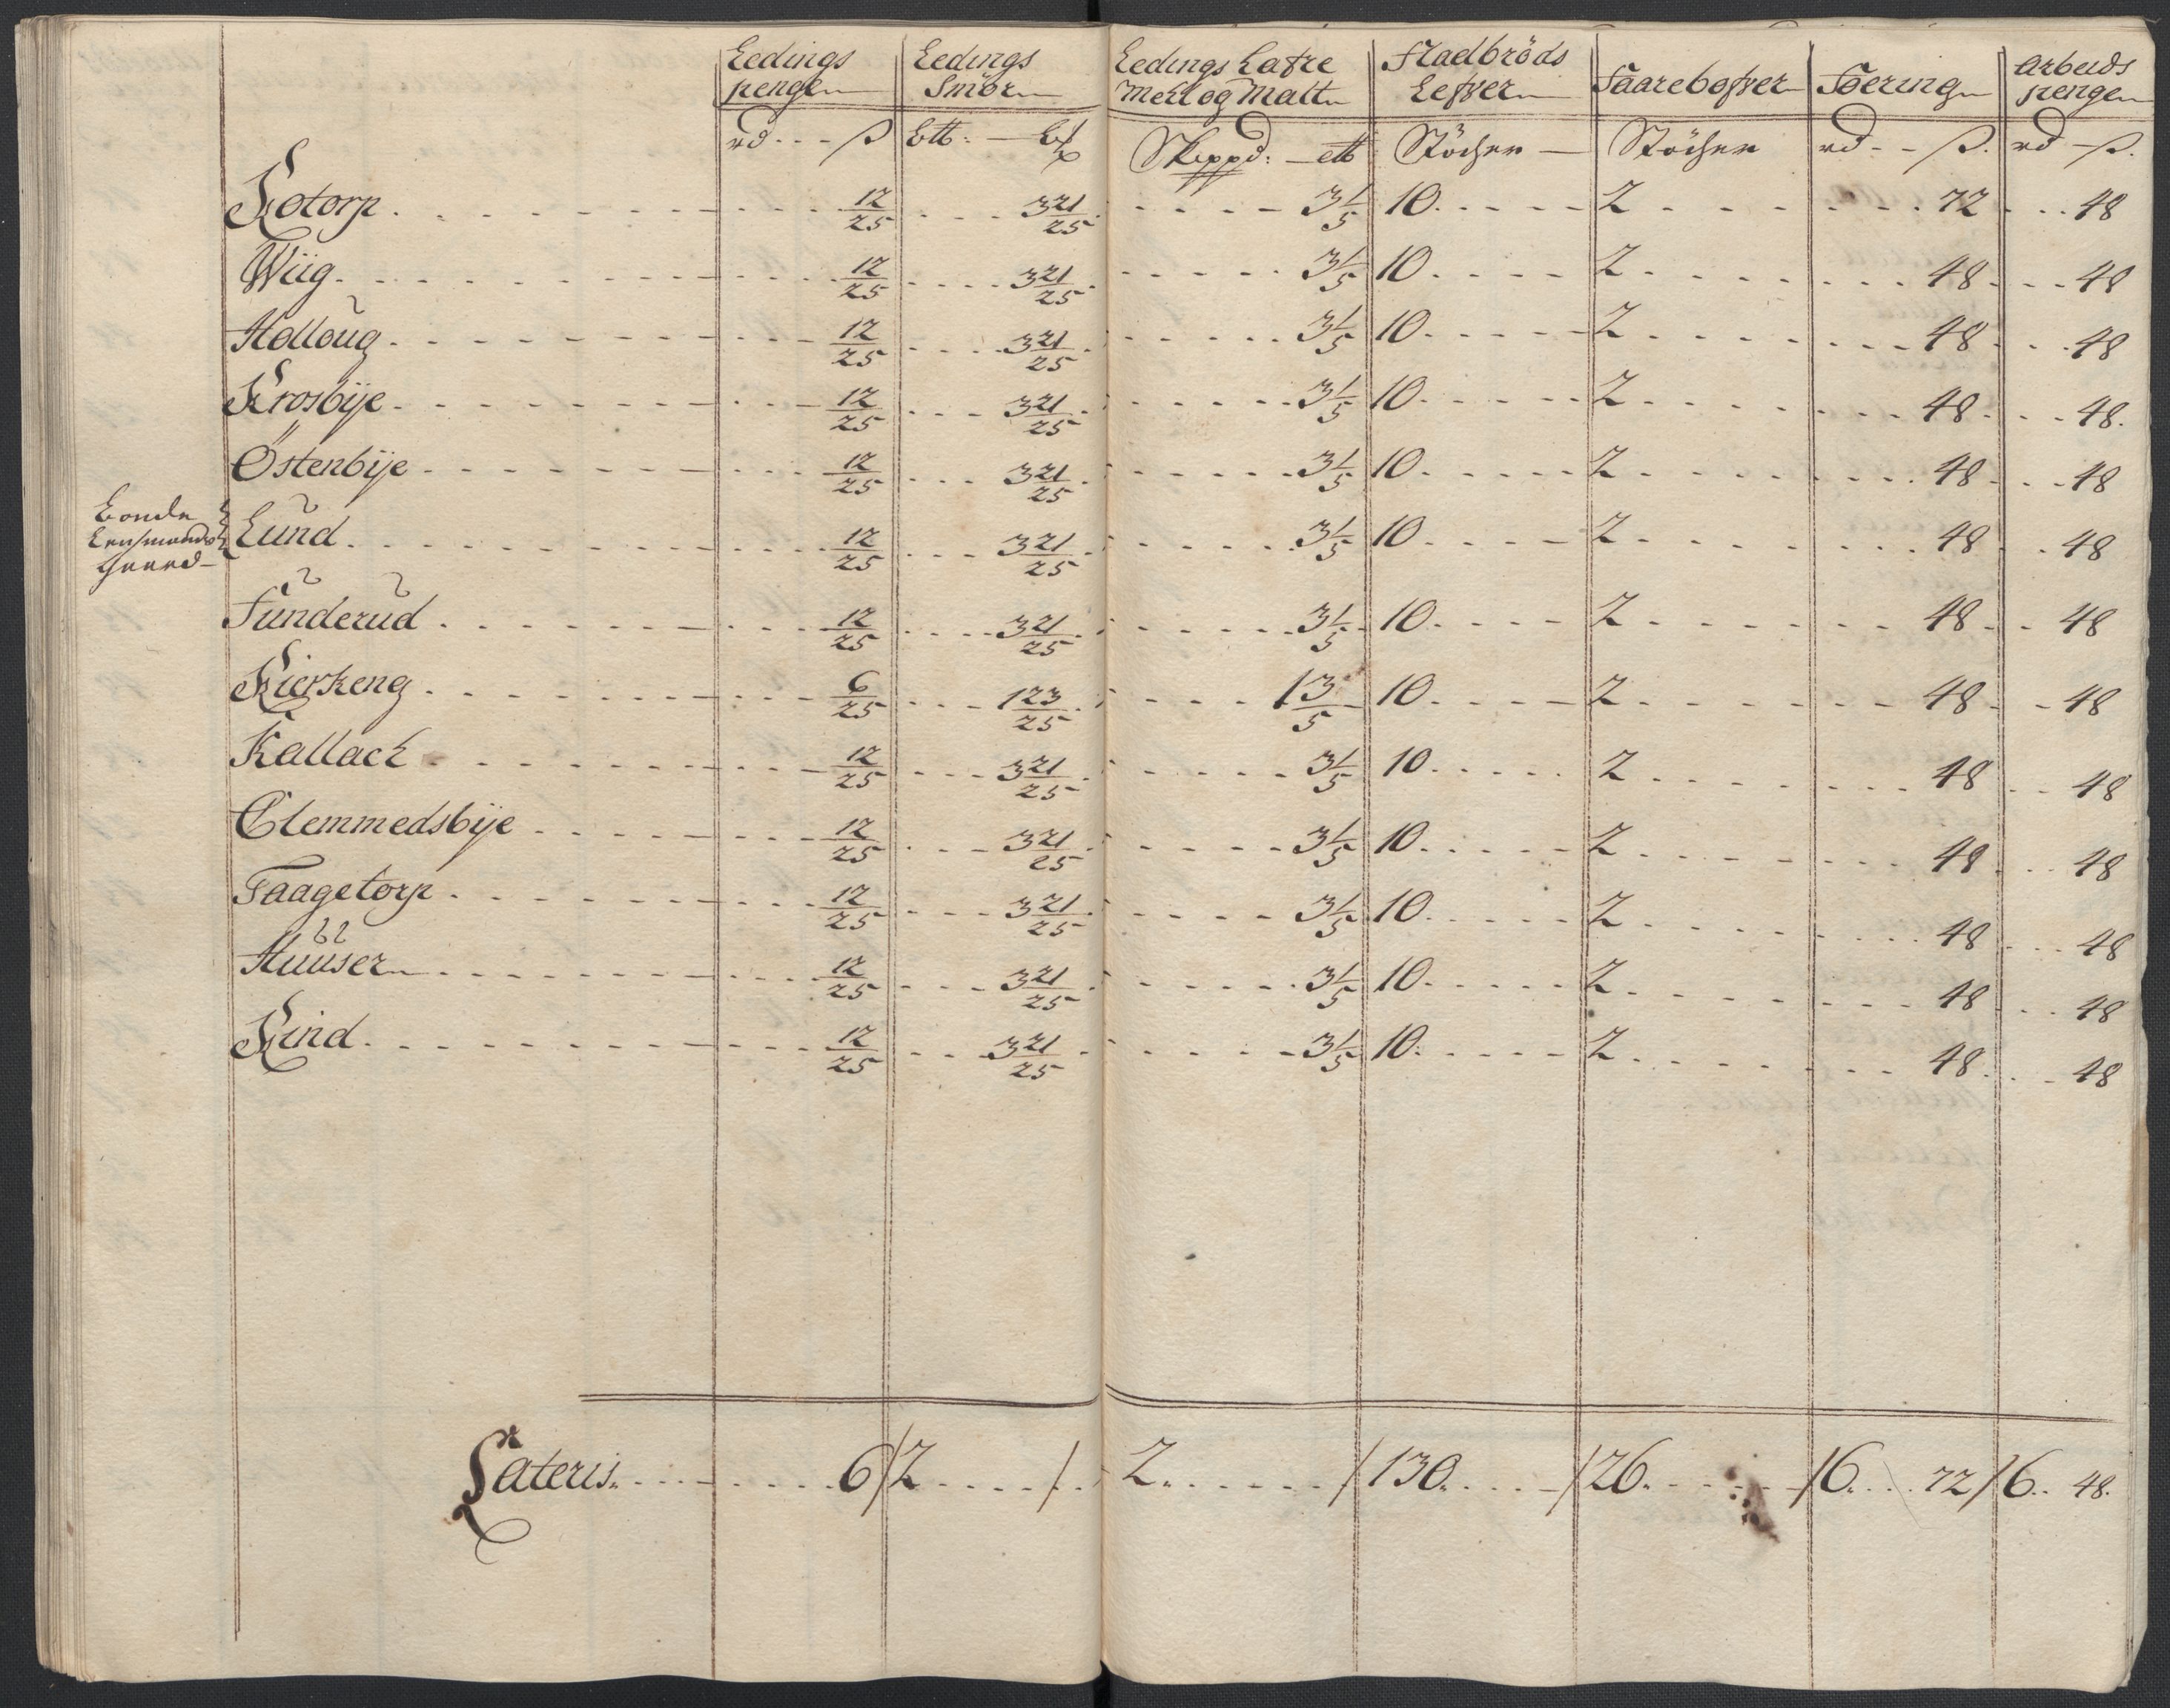 Ledings pengen | Ledings Smörn | Ledings Lafre Mehl og Maltn | Fladbröds Lefvern | Faarebofver | Föeringn | Arbeids pengen
rd - - ß | | Skippd: - | Stöcher | Stöcher | rd - - ß. | rd - ß.
Kotorp . | 12/25 | 3 21/25 | 3 1/5 | 10. | 2 | 72 | 48
Wiig. | 12/25 | 3 21/25 | 3 1/5 | 10. | 2 | 48 | 48
Holloug. | 12/25 | 3 21/25 | 3 1/5 | 10. | 2 | 48 | 48
Krosbÿe. | 12/25 | 3 21/25 | 3 1/5 | 10. | 2 | 48 | 48.
Östenbÿe | 12/25 | 3 21/25 | 3 1/5 | 10. | 2 | 48 | 48
Bonde Lensmands Gaard Lund. | 12/25 | 3 21/25 | 3 1/5 | 10. | 2 | 48 | 48
Funderud . | 12/25 | 3 21/25 | 3 1/5 | 10. | 2 | 48 | 48
Kierkeng . | 6/25 | 1 23/25 | 1 3/5 | 10. | 2 | 48 | 48
Kallack | 12/25 | 3 21/25 | 3 1/5 | 10. | 2 | 48 | 48
Clemmedsbÿe | 12/25 | 3 21/25 | 3 1/5 | 10. | 2 | 48 | 48
Taagetorp . | 12/25 | 3 21/25 | 3 1/5 | 10. | 2 | 48 | 48
Huusern | 12/25 | 3 21/25 | 3 1/5 | 10. | 2 | 48 | 48
Kind. | 12/25 | 3 21/25 | 3 1/5 | 10. | 2 | 48 | 48
Lateris. | 6 / | 2 / | 2 / | 130. / | 26. / | 6. 72 / | 6. 48.